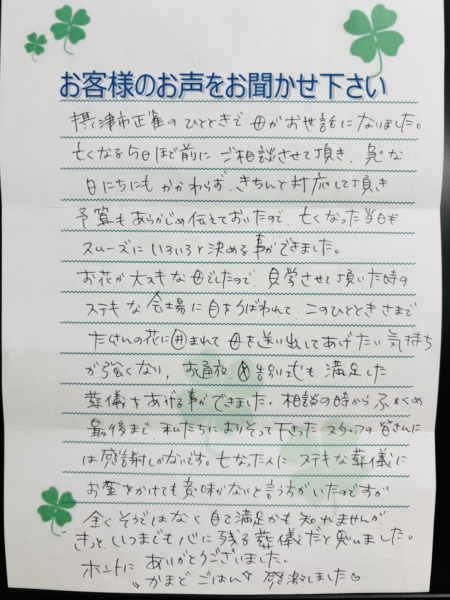 お客様のお声をお聞かせ下さい
摂津市正雀のひとときで母がお世話になりました。
亡くなる5日ほど前にご相談させて頂き、急な
日にちにもかかわらず、きちんと対応して頂き
予算もあらかじめ伝えておいたので、亡くなった当日も
スムーズにいろいろと決める事ができました。
お花が大スキな母でしたので、見学させて頂いた時の
ステキな会場に目をうばわれて、このひとときさまで
たくさんの花に囲まれて母を送り出してあげたい気持ち
が強くなり、お通夜 告別式も満足した
葬儀をあげる事ができました。相談の時からふくめ
最後まで私たちによりそって下さったスタッフの皆さんに
は感謝しかないです。亡なった人にステキな葬儀に
お金をかけても意味がないと言う方がいたのですが
全くそうではなく自己満足かも知れませんが
きっといつまでも心に残る葬儀だと思いました。
ホントにありがとうございました。
"かまどごはん" 感激しました♡